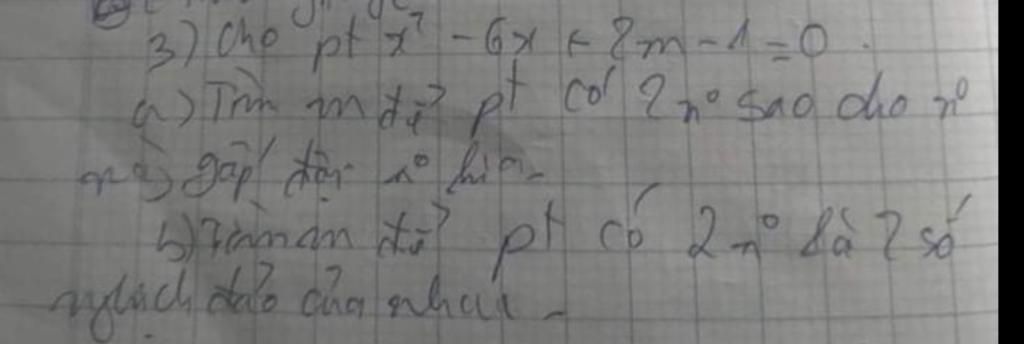 3) Cho pt x² - 6x + 2m - 1 = 0.
a) Tìm m để pt có 2 n° sao cho n°
này gấp đôi n° kia.
b) Tìm m để pt có 2 n° là 2 số
nghịch đảo của nhau.